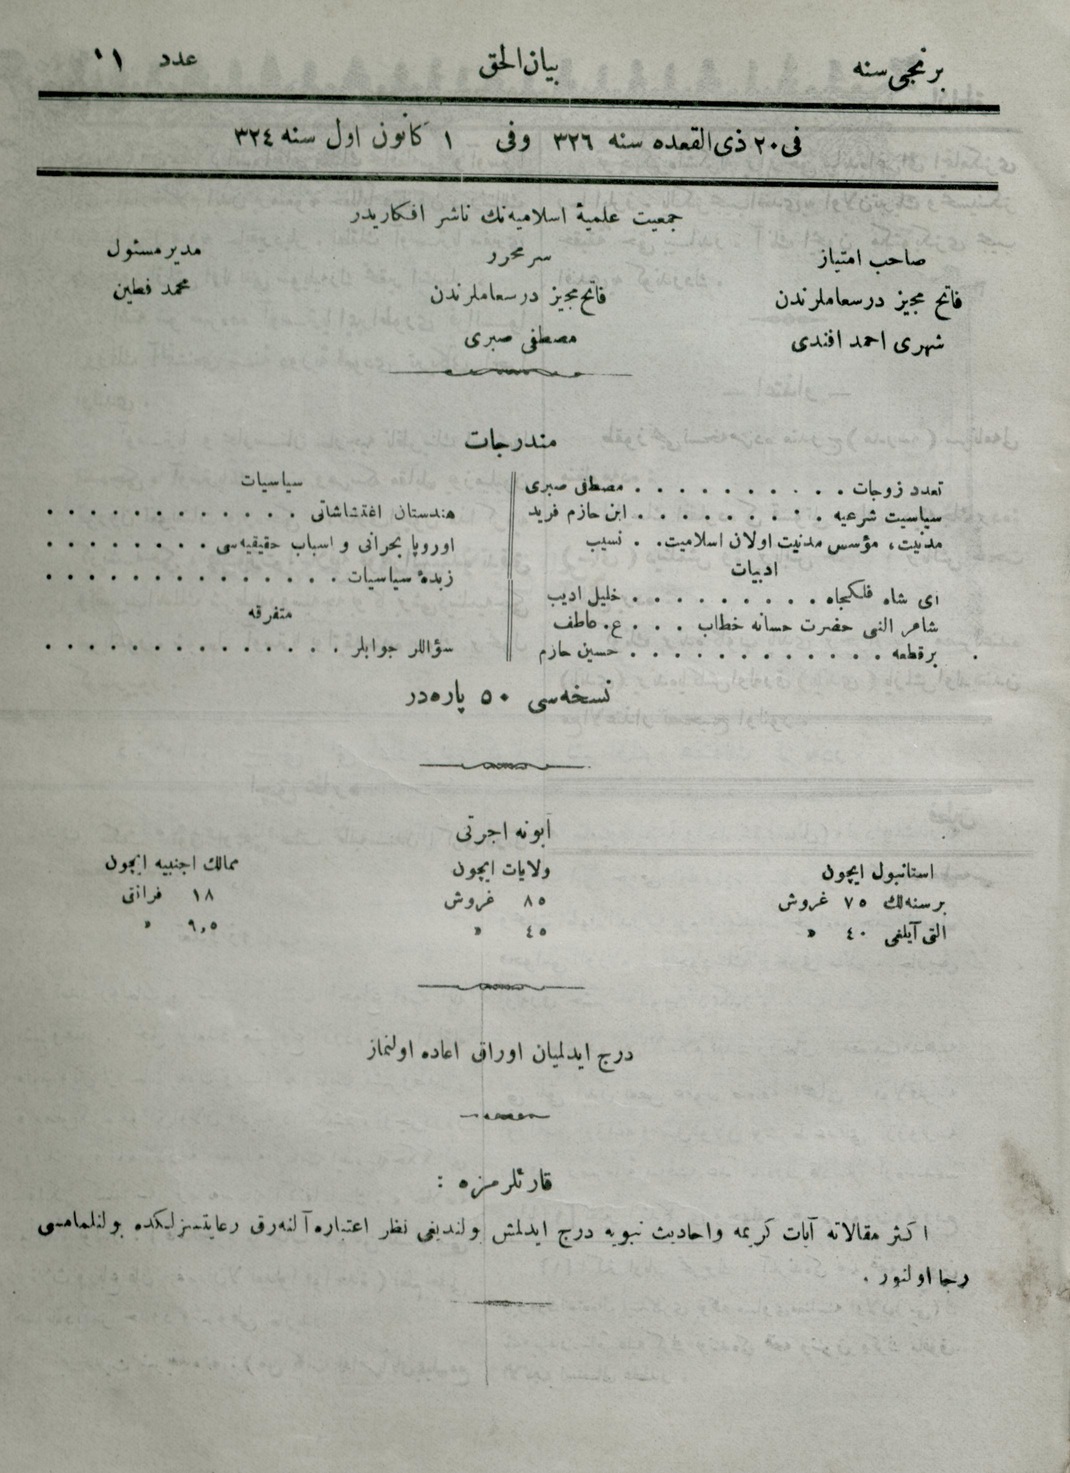 برنجی سنه
بیان الحق
عدد ۱۱
فی ۲۰ ذی القعده سنه ۳۲٦ وفی ۱ کانون اول سنه ۳۲٤
جمعیت علمیهٔ اسلامیه نك ناشر افکاریدر
صاحب امتیاز
فاتح مجیز درسعاملرندن
شهری احمد افندی
سر محرر
فاتح مجیز درسعاملرندن
مصطفی صبری
مدیر مسئول
محمد فطین
مندرجات
تعدد زوجات . . . . . . . . . . مصطفی صبری
سیاسیت شرعیه . . . . . . . . . ابن حازم فرید
مدنیت، مؤسس مدنیت اولان اسلامیت . . نسیب
ادبیات
ای شاه فلکجاه . . . . . . . . . خلیل ادیب
شاعر النبی حضرت حسانه خطاب . . . ع. عاطف
برقطعه . . . . . . . . . . . . حسین حازم
سیاسیات
هندستان اغتشاشاتی . . . . . . . . . . . .
اوروپا بحرانی و اسباب حقیقیه سی . . . . . . . .
زبدهٔ سیاسیات . . . . . . . . . . . . . .
متفرقه
سؤاللر جوابلر . . . . . . . . . . . . . .
نسخه سی ۵۰ پاره در
ابونه اجرتی
استانبول ایچون
برسنه لك ۷۵ غروش
التی آیلغی ٤۰ »
ولایات ایچون
۸۵ غروش
٤۵ »
ممالك اجنبیه ایچون
۱۸ فرانق
۹,۵ »
درج ایدلمیان اوراق اعاده اولنماز
قارئلرمزه :
اکثر مقالاته آیات کریمه واحادیث نبویه درج ایدلمش بولندیغی نظر اعتباره آلنه رق رعایتسزلکده بولنلمامسی
رجا اولنور .